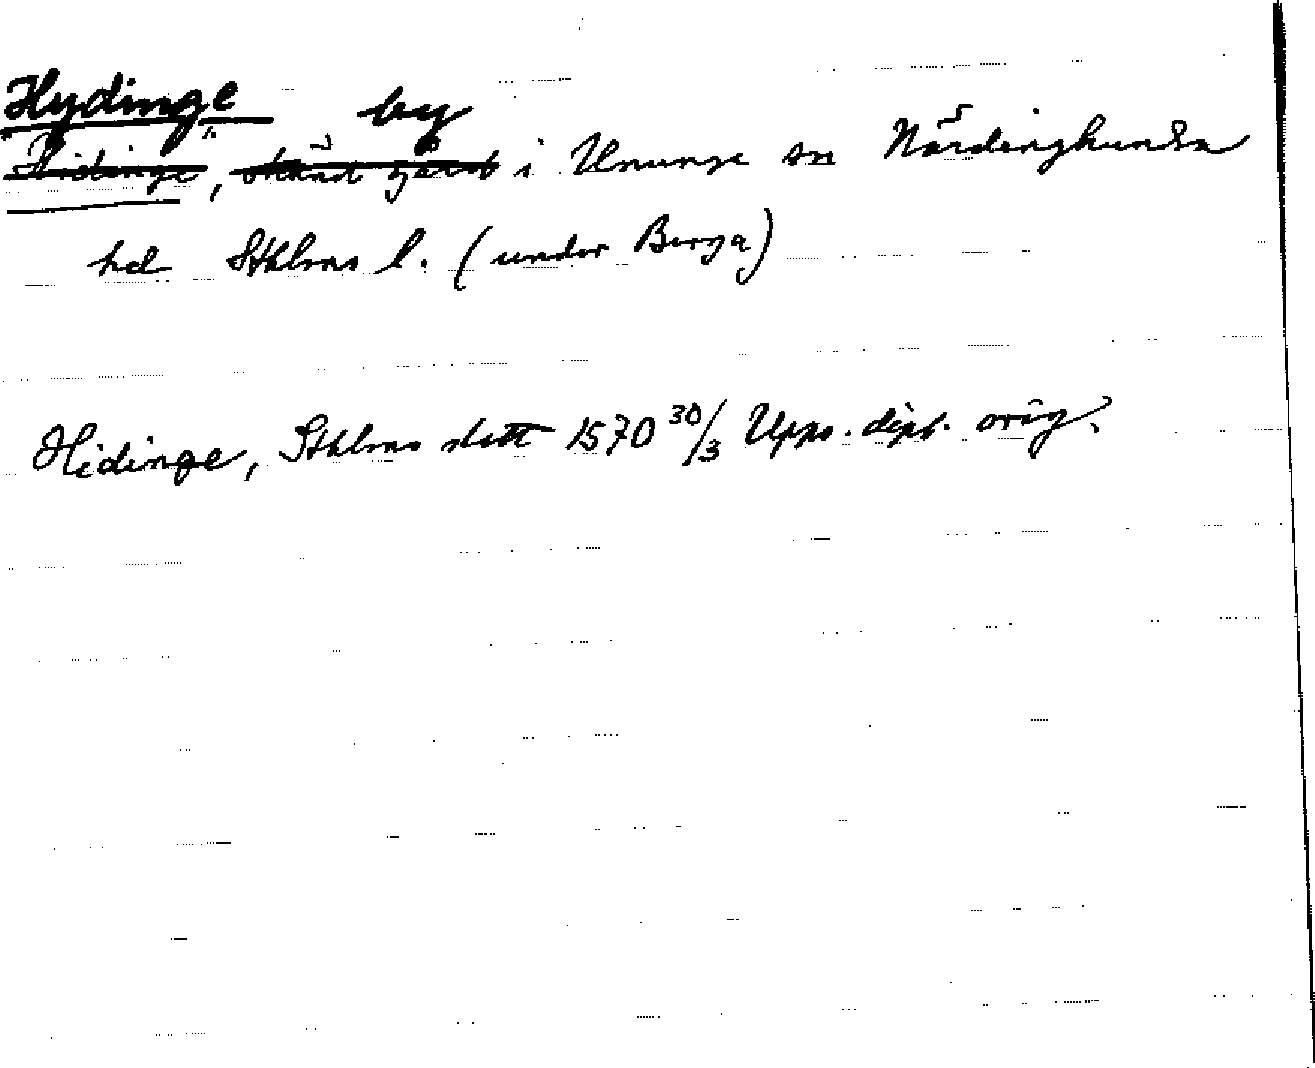 Hydinge by
"Hidinge", okänd gård i Ununge sn Närdinghundra
hd Sthlms l. (under Berga)
Hidinge, Sthlms slott 1570 30/3 Upps. dipl. orig.